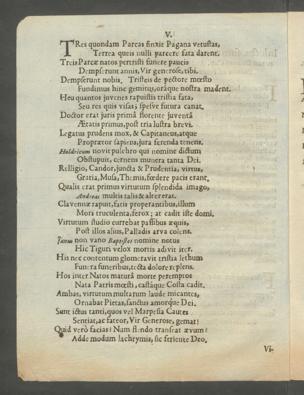 V.
TRes quondam Parcas finxit Pagana vetustas,
Terrea queis nulli parcere fata darent.
Tres Parcæ natos pertristi funere
Dempserunt annis, Vir generose, tibi.
Dempserunt nobis. Tristeis de pectore mœsto
Fundimus hinc gemitus, oraque nostra madent.
Heu quantos juvenes rapuistis tristia fata;
Seu res quis visas; spesve futura canat,
Doctor erat juris primâ florente juventâ
Ætatis primus, post tria lustra brevi.
Legatus prudens mox, & Capitaneus, atque
Proprætor sapiens, jura ferenda tenens.
Huldricum novit pulchro qui nomine dictum
Obstupuit, ternens munera tanta Dei.
Relligio, Candor, juncta & Prudentia, virtus,
Gratia, Musa, Themis, fœdere pacis erant,
Qualis erat primus virtutum splendida imago,
Andreas multis talis & alter erat.
Clavennæ rapuit, fatis properantibus, illum
Mors truculenta, ferox; at cadit iste domi,
Virtutum studio currebat passibus æquis,
Post illos alius, Palladis arva colens.
Janus non vano Baptistes nomine notus
Hic Tiguri velox mortis adivit iter.
His nec contentum glomeravit tristia lethum
Funera funeribus, tecta dolore replens.
Hos inter Natos maturâ morte peremptos
Nata Patris mœsti, castáque Costa cadit.
Ambas, virtutum multarum laude micantes,
Ornabat Pietas, sanctus amorque Dei.
Sunt ictus tanti, quos vel Marpesia Cautes
Sentiat, ac fateor, Vir Generose, gemat?
Quid verò facias? Nam flendo transeat ævum?
Adde modum lachrymis, sic feriente Deo,
Vi-